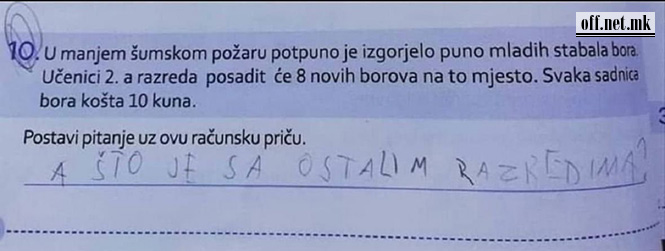 off.net.mk
10. U manjem šumskom požaru potpuno je izgorjelo puno mladih stabala bora.
Učenici 2. a razreda posadit će 8 novih borova na to mjesto. Svaka sadnica
bora košta 10 kuna.
Postavi pitanje uz ovu računsku priču.
A ŠTO JE SA OSTALIM RAZREDIMA?